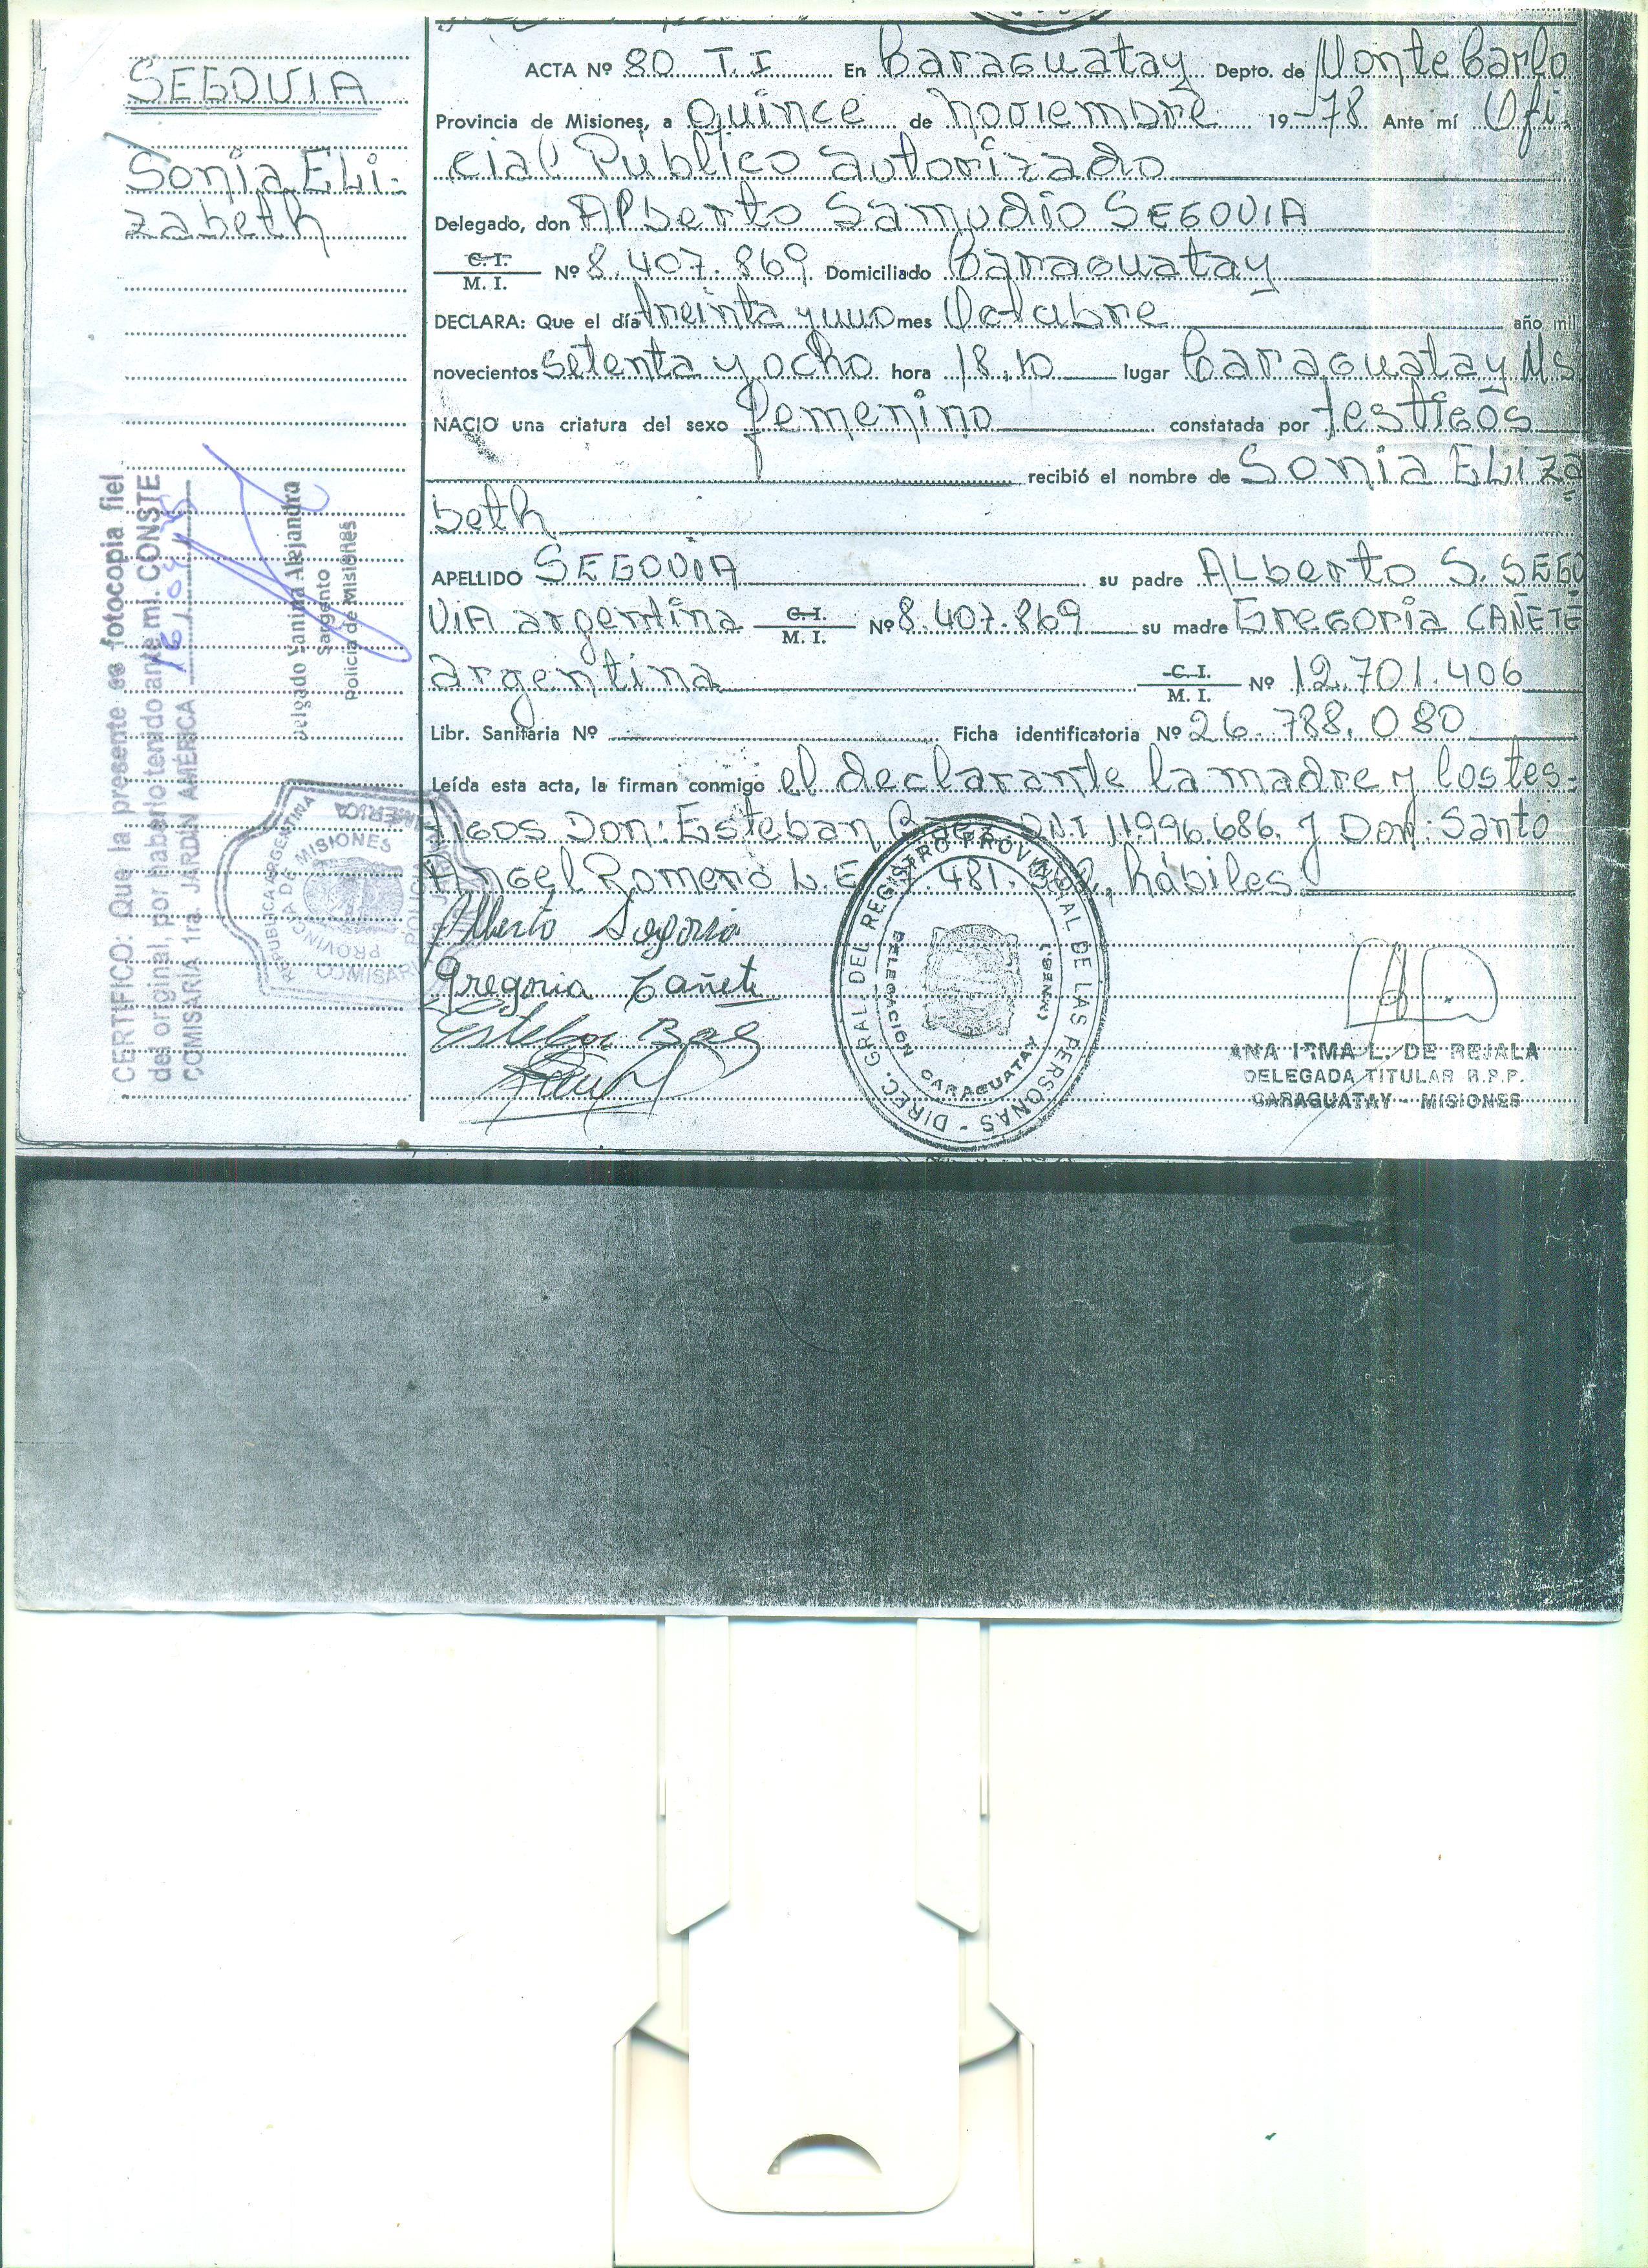 SEGOVIA
Sonia ELi-
zabeth
ACTA Nº 80 T.I En Caraguatay Depto. de Monte Carlo
Provincia de Misiones, a quince de noviembre 1978 Ante mí Ofi-
cial Público autorizado
Delegado, don Alberto Samudio SEGOVIA
C.I. / M.I. Nº 8.407.869 Domiciliado Caraguatay
DECLARA: Que el día treinta y uno mes Octubre año mil
novecientos setenta y ocho hora 18,10 lugar Caraguatay Ms
NACIO una criatura del sexo femenino constatada por testigos
recibió el nombre de Sonia ELiza
beth
APELLIDO SEGOVIA su padre ALberto S. SEGO
ViA argentina C.I. / M.I. Nº 8.407.869 su madre Gregoria CAÑETE
argentina C.I. / M.I. Nº 12.701.406
Libr. Sanitaria Nº Ficha identificatoria Nº 26.788.080
Leída esta acta, la firman conmigo el declarante la madre y los tes-
tigos Don: Esteban DNI 11.996.686. y Don: Santo
Angel Romero L.E. 481. hábiles
Alberto Segovia
Gregoria Cañete
Esteban
ANA IRMA L. DE REJALA
DELEGADA TITULAR R.P.P.
CARAGUATAY - MISIONES
DIREC. GRAL. DEL REGISTRO PROVINCIAL DE LAS PERSONAS -
DELEGACION CARAGUATAY (MNES.)
CERTIFICO: Que la presente es fotocopia fiel
del original, por haberlo tenido ante mi. CONSTE
COMISARIA 1ra. JARDIN AMERICA 16
Delgado Yanina Alejandra
Sargento
Policia de Misiones
REPUBLICA ARGENTINA
PROVINCIA DE MISIONES